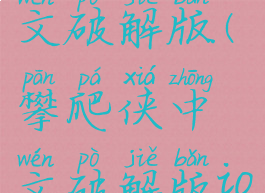 wén pò jiě bǎn
文破解版(
pān pá xiá zhōng
攀爬侠中
wén pò jiě bǎn
文破解版设